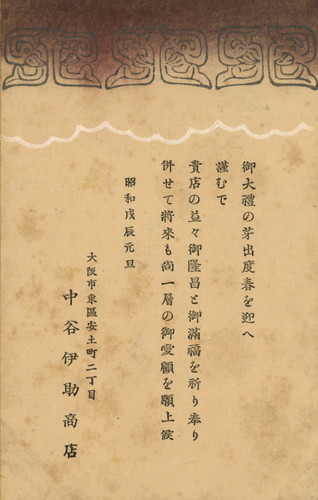 御大禮の芽出度春を迎へ
謹むで
貴店の益々御隆昌と御滿福を祈り奉り
併せて將來も尚一層の御愛顧を願上候
昭和戊辰元旦
大阪市東區安土町二丁目
中谷伊助商店